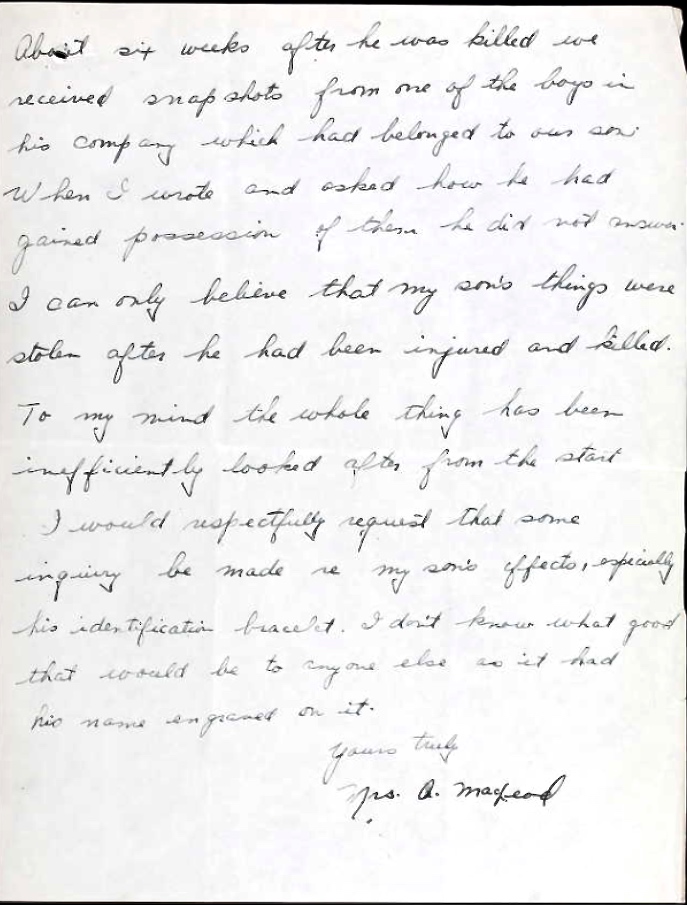 About six weeks after he was killed we
received snapshots from one of the boys in
his company which had belonged to our son.
When I wrote and asked how he had
gained possession of them he did not answer.
I can only believe that my son's things were
stolen after he had been injured and killed.
To my mind the whole thing has been
inefficiently looked after from the start
I would respectfully request that some
inquiry be made re my son's effects, especially
his identification bracelet. I don't know what good
that would be to anyone else as it had
his name engraved on it.
Yours truly
Mrs. A. MacLeod